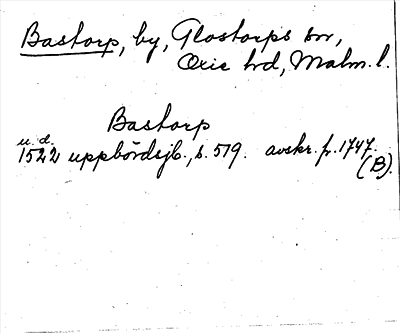 Bastorp, by, Glostorps sn,
Oxie hd, Malm. l.
Bastorp
u. d.
1522 uppbördsjb., s. 519. avskr. fr. 1747.
(B).